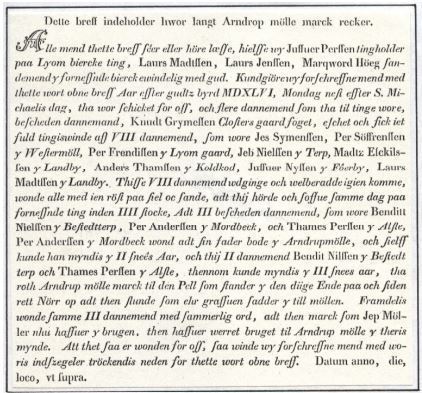 Dette breff indeholder hwor langt Arndrup mölle marck recker.
Alle mend thette breff seer eller höre læsse, hielsse wy Jussuer Perssen tingholder
paa Lyom biercke ting, Laurs Madtssen, Laurs Jenssen, Marqword Höeg san-
demend y fornessnde bierck ewindelig med gud. Kundgiöre wy forschressne mend med
thette wort obne breff Aar effter gudtz byrd MDXLVI, Mondag nest effter S. Mi-
chaelis dag, tha wor schicket for oss, och flere dannemend som tha til tinge wore,
bescheden dannemand, Knudt Grymessen Closters gaard foget, eschet och fick iet
fuld tingiswinde aff VIII dannemend, som wore Jes Symenssen, Per Söffrenssen
y Westermöll, Per Frendissen y Lyom gaard, Jeb Nielssen y Terp, Madtz Esckils-
sen y Landby, Anders Thamssen y Koldkud, Jussuer Nyssen y Föerby, Laurs
Madtssen y Landby. Thisse VIII dannemend wdginge och welberadde igien komme,
wonde alle med ien röst paa siel oc sande, adt thij hörde och sossue samme dag paa
fornessnde ting inden IIII stocke, Adt III bescheden dannemend, som wore Benditt
Nielssen y Bestedtterp, Per Anderssen y Mordbeck, och Thames Perssen y Alste,
Per Anderssen y Mordbeck wond adt sin fader bode y Arndrupmölle, och sielff
kunde han myndis y II sneês Aar, och thij II dannemend Bendit Nilssen y Bestedt
terp och Thames Perssen y Alste, thennom kunde myndis y III snees aar, tha
roth Arndrup mölle marck til den Pell som stander y den diige Ende paa och siden
rett Nörr op adt then stunde som ehr graffuen sadder y till möllen. Framdelis
wonde samme III dannemend med sammerlig ord, adt then marck som Jep Möl-
ler nhu haffuer y brugen, then haffuer werret bruget til Arndrup mölle y theris
mynde. Att thet saa er wonden for oss, saa winde wy forschressne mend med wo-
ris indszegeler tröckendis neden for thette wort obne breff. Datum anno, die,
loco, vt supra.